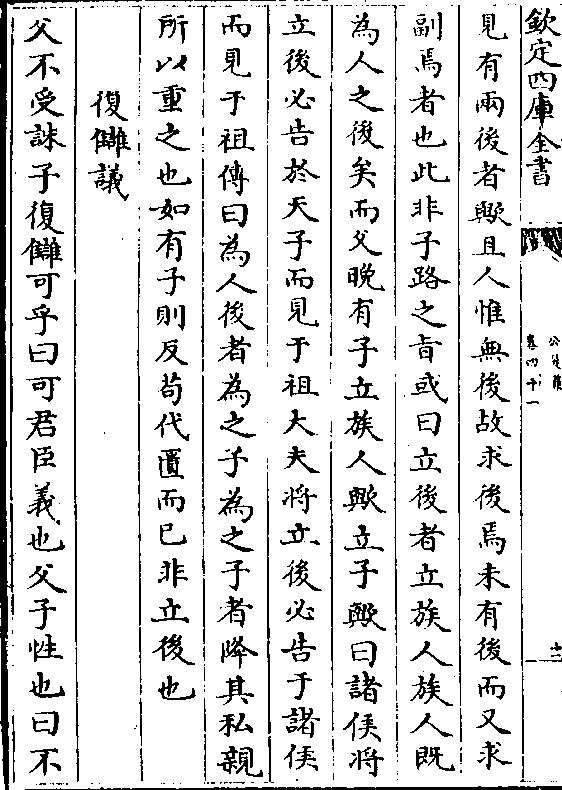 欽定四庫全書
公是集
卷四十一
十一
見有兩後者歟且人惟無後故求後焉未有後而又求
副焉者也此非子路之旨或曰立後者立族人族人既
為人之後矣而父晚有子立族人歟立子歟曰諸侯將
立後必告於天子而見于祖大夫將立後必告于諸侯
而見于祖傳曰為人後者為之子為之子者降其私親
所以重之也如有子則反苟代匱而已非立後也
復讎議
父不受誅子復讎可乎曰可君臣義也父子性也曰不